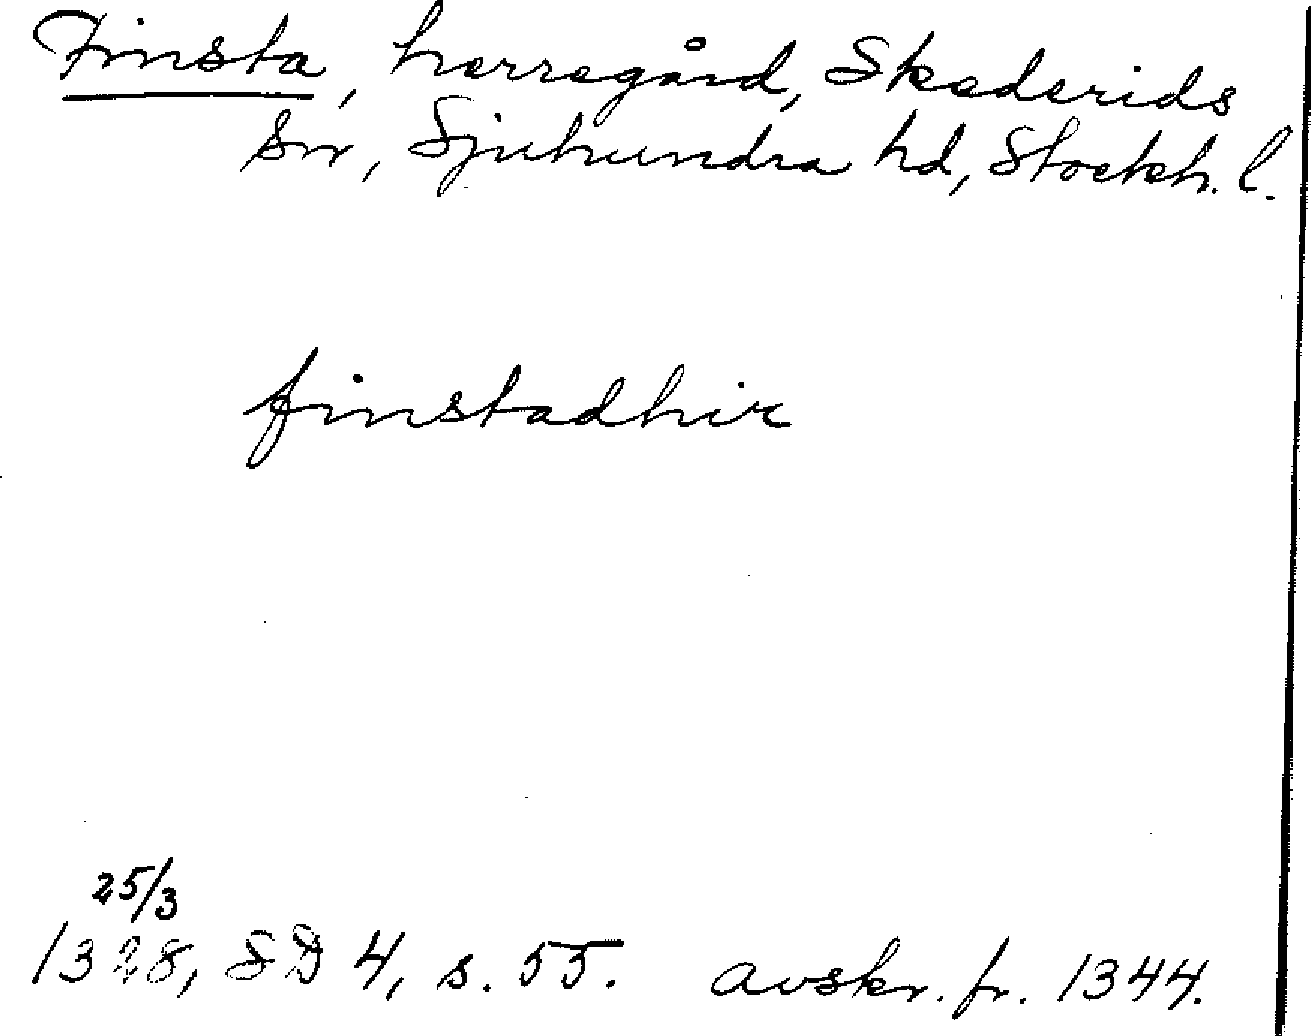 Finsta, herregård, Skederids
sn, Sjuhundra hd, Stockh. l.
finstadhir
25/3
1328, SD 4, s. 55. avskr. fr. 1344.